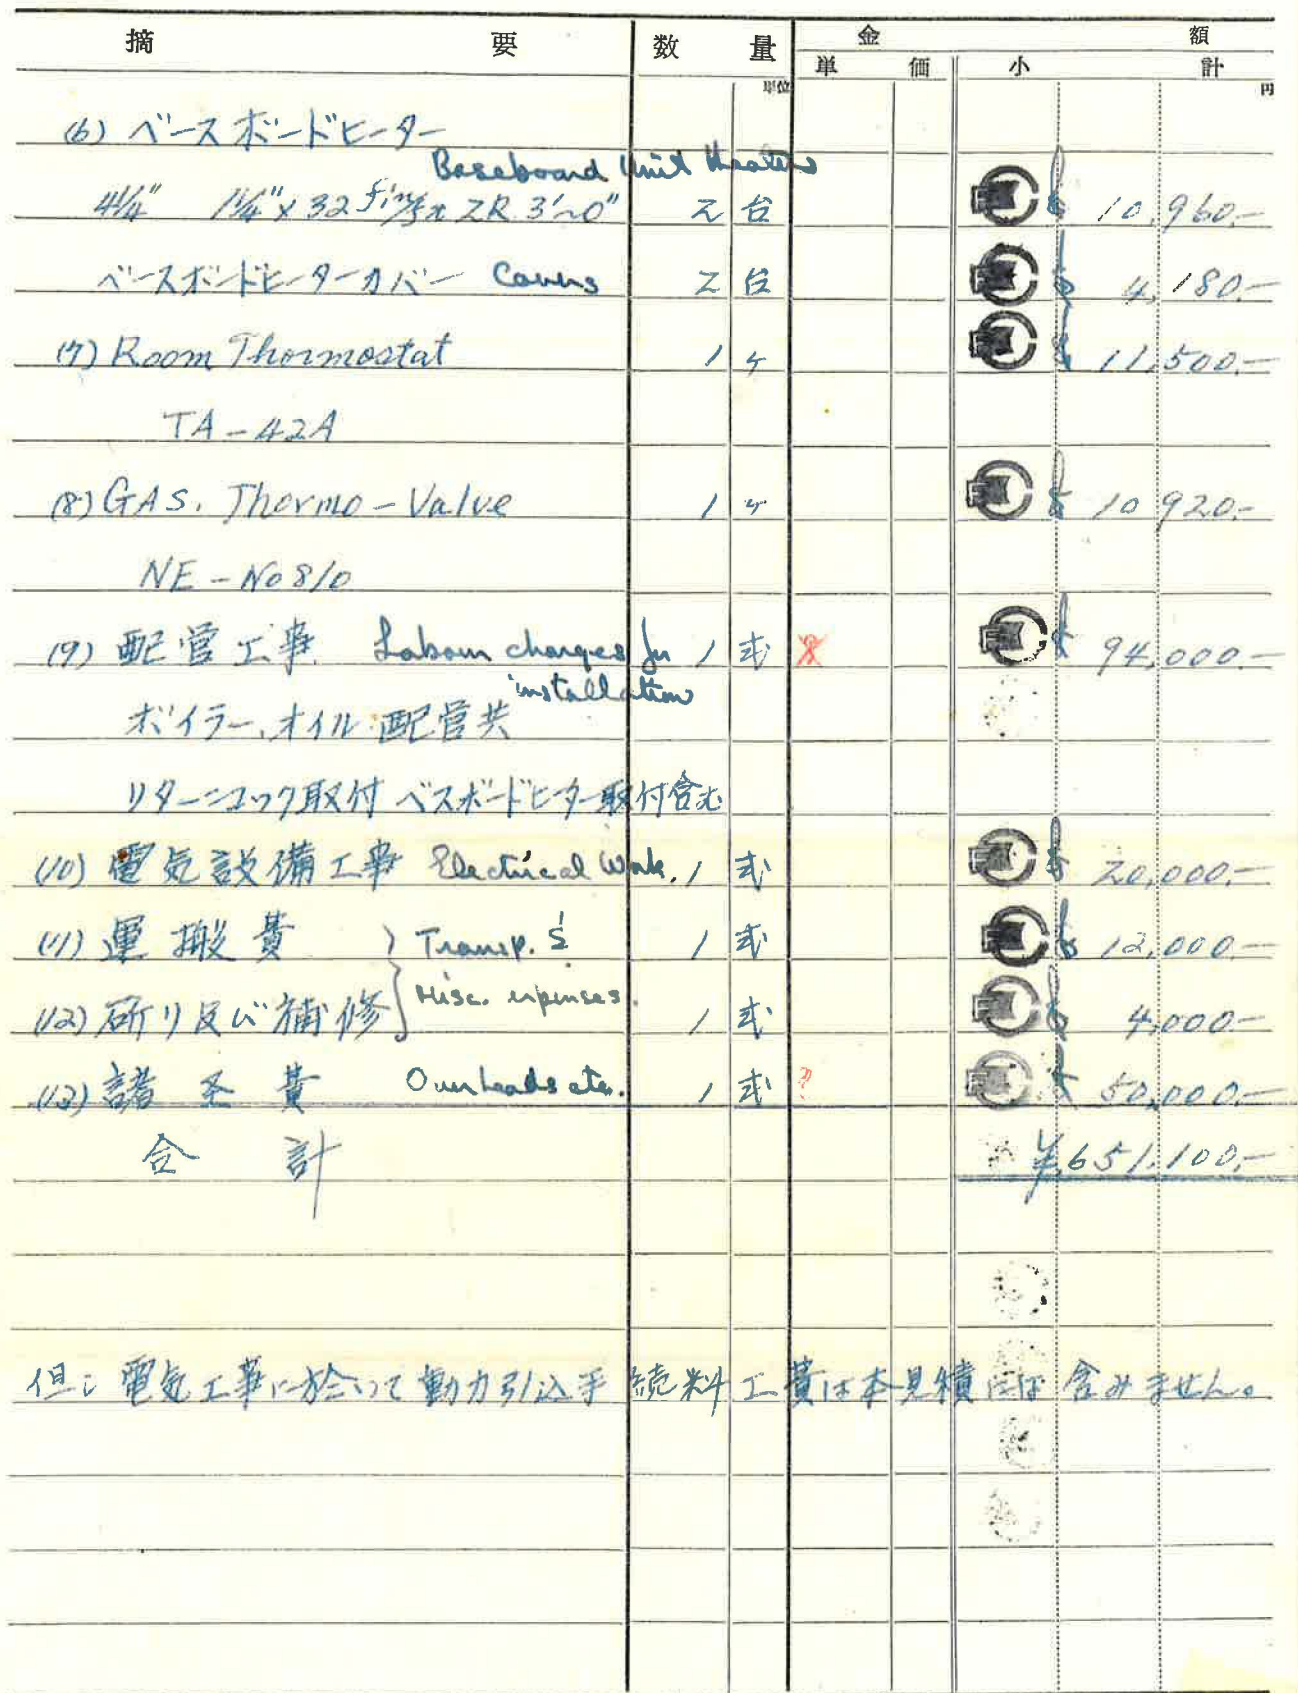 摘 要 数 量 金 額
単 価 小 計
単位 円
(6) ベースボードヒーター
Baseboard Unit Heaters
4¼" 1¼" × 32 fin/ft 2R 3'~0" 2 台 10,960.-
ベースボードヒーターカバー Covers 2 台 4,180.-
(7) Room Thermostat 1 ケ 11,500.-
TA-42A
(8) GAS. Thermo-Valve 1 ケ 10,920.-
NE-No 810
(9) 配管工事 Labour charges for 1 式 94,000.-
installation
ボイラー、オイル配管共
リターンコック取付 ベスボードヒーター取付含む
(10) 電気設備工事 Electrical Work. 1 式 20,000.-
(11) 運搬費 Transp. & 1 式 12,000.-
Misc. expenses.
(12) 斫リ及び補修 1 式 4,000.-
(13) 諸圣費 Overheads etc. 1 式 ? 50,000.-
合計 ¥651,100.-
但し電気工事に於いて動力引込手続料工費は本見積には含みません。